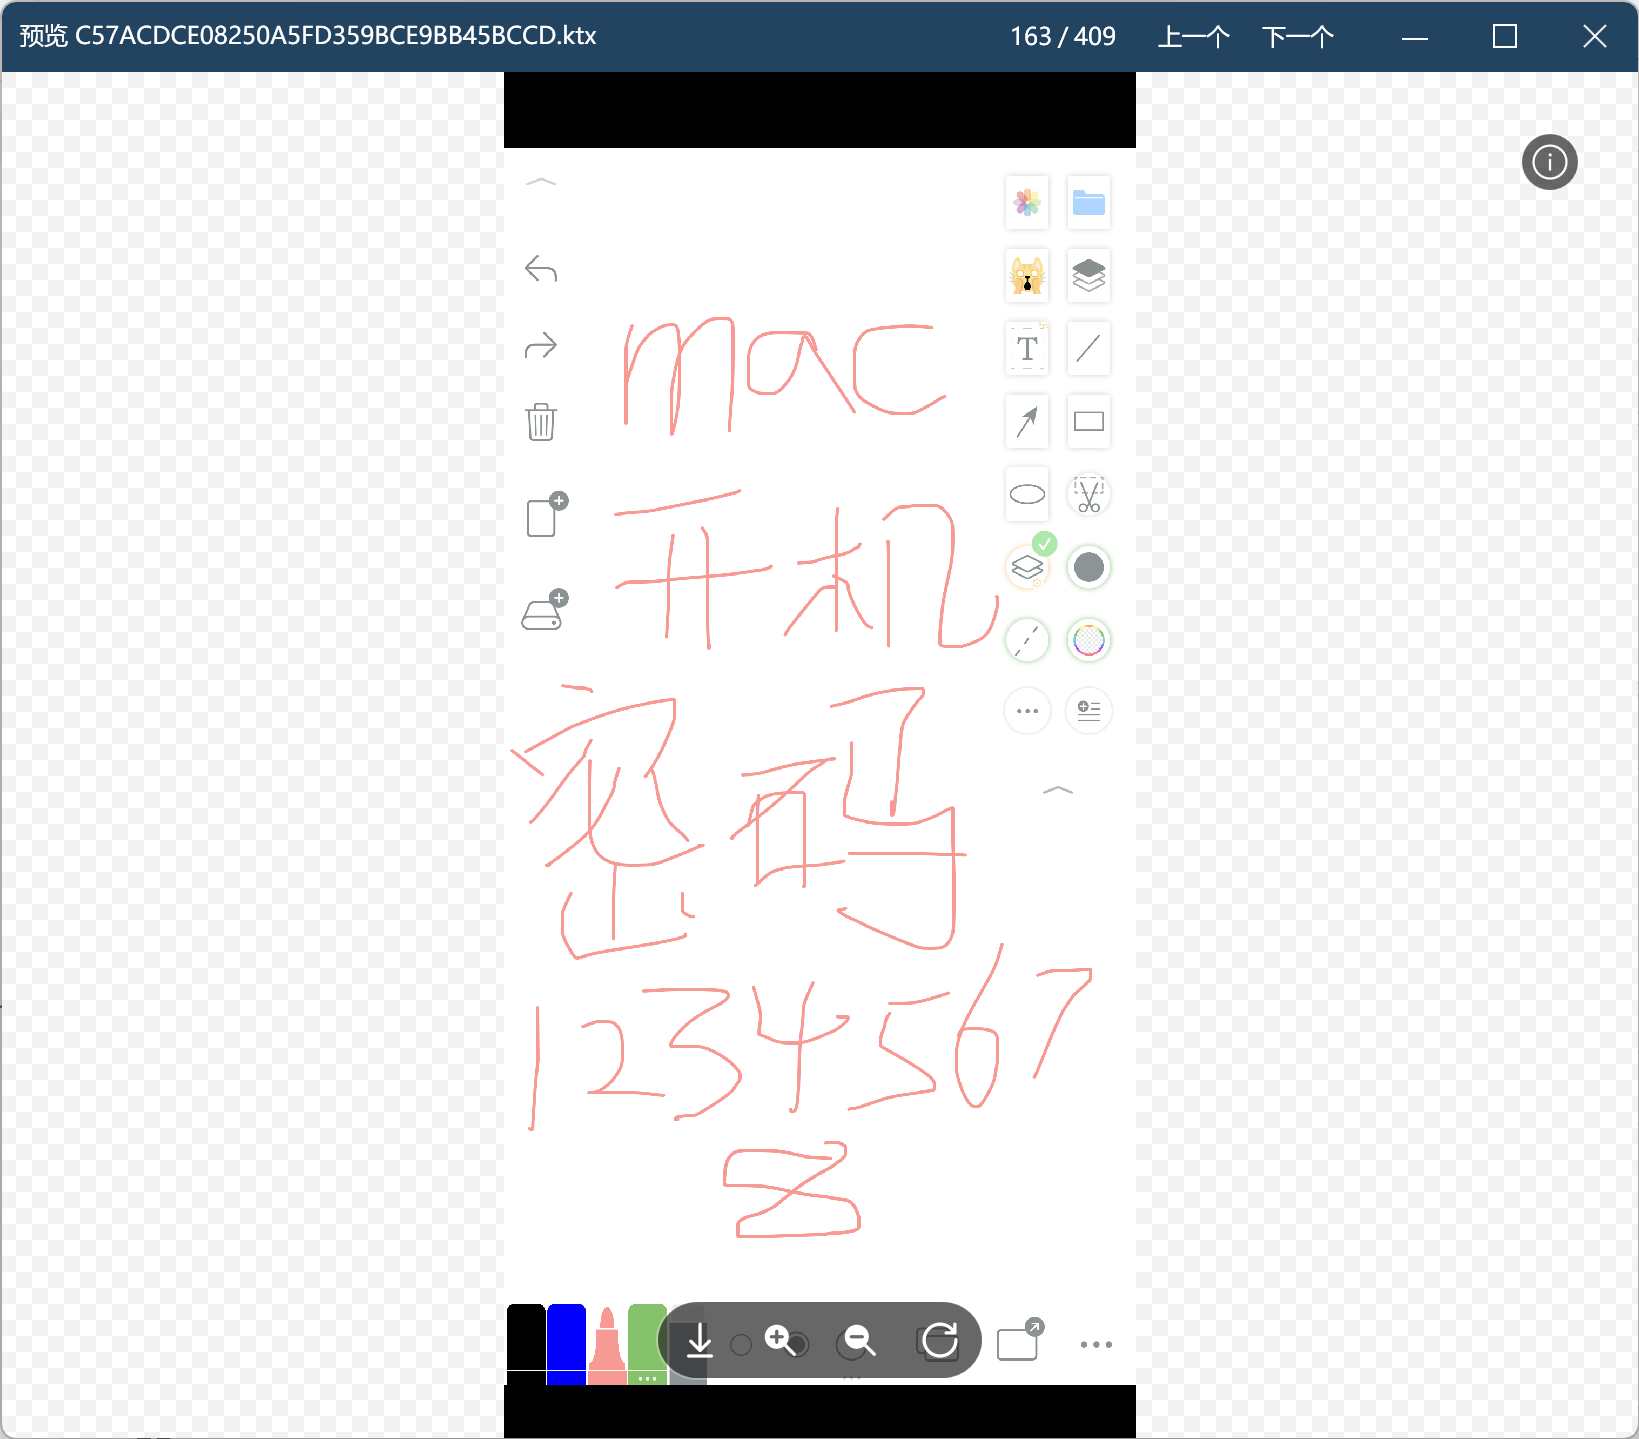 预览 C57ACDCE08250A5FD359BCE9BB45BCCD.ktx 163 / 409 上一个 下一个
T
mac
开机
密码
1234567
8